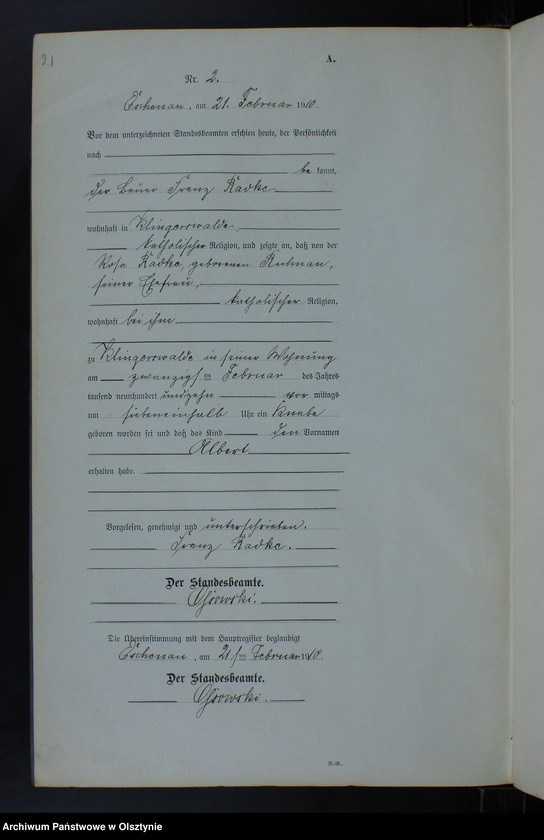 21
A.
Nr. 2.
Eschenau, am 21. Februar 1910.
Vor dem unterzeichneten Standesbeamten erschien heute, der Persönlichkeit
nach
be kannt,
der Bauer Franz Radke
wohnhaft in Klingerswalde,
katholischer Religion, und zeigte an, daß von der
Rosa Radke, geborenen
seiner Ehefrau,
katholischer Religion,
wohnhaft bei ihm
zu Klingerswalde in seiner Wohnung
am zwanzigsten Februar des Jahres
tausend neunhundert undzehn vor mittags
um siebeneinhalb Uhr ein Knabe
geboren worden sei und daß das Kind den Vornamen
Albert
erhalten habe.
Vorgelesen, genehmigt und unterschrieben.
Franz Radke.
Der Standesbeamte.
Die Übereinstimmung mit dem Hauptregister beglaubigt
Eschenau, am 21ten Februar 1910.
Der Standesbeamte.
Archiwum Państwowe w Olsztynie